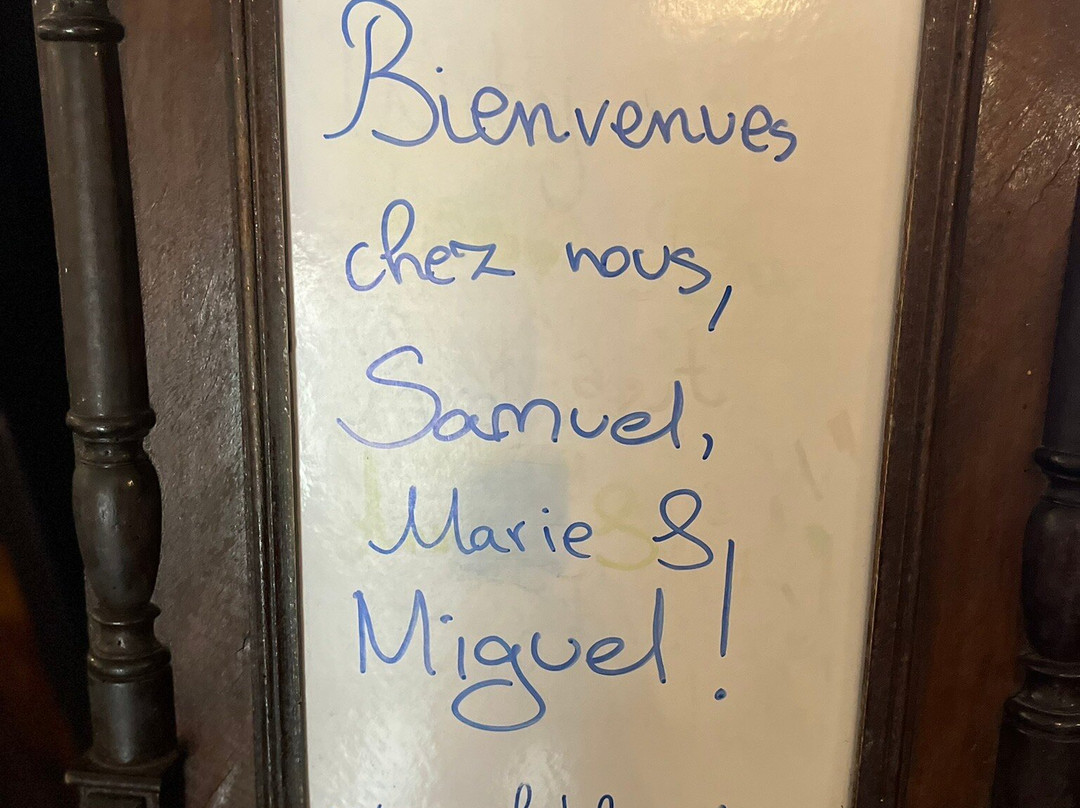 Bienvenues
chez nous,
Samuel,
Marie &
Miguel!